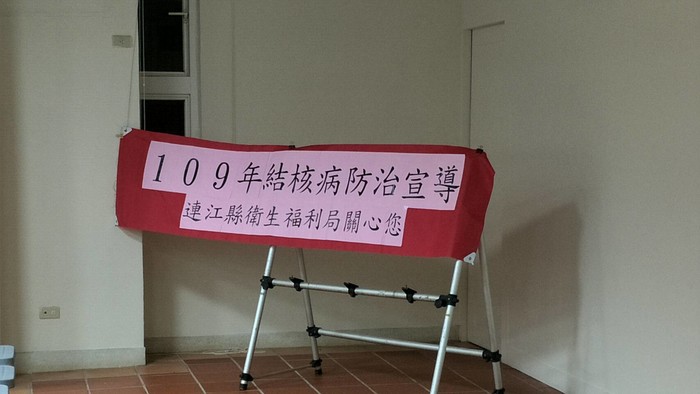 109年結核病防治宣導
連江縣衛生福利局關心您